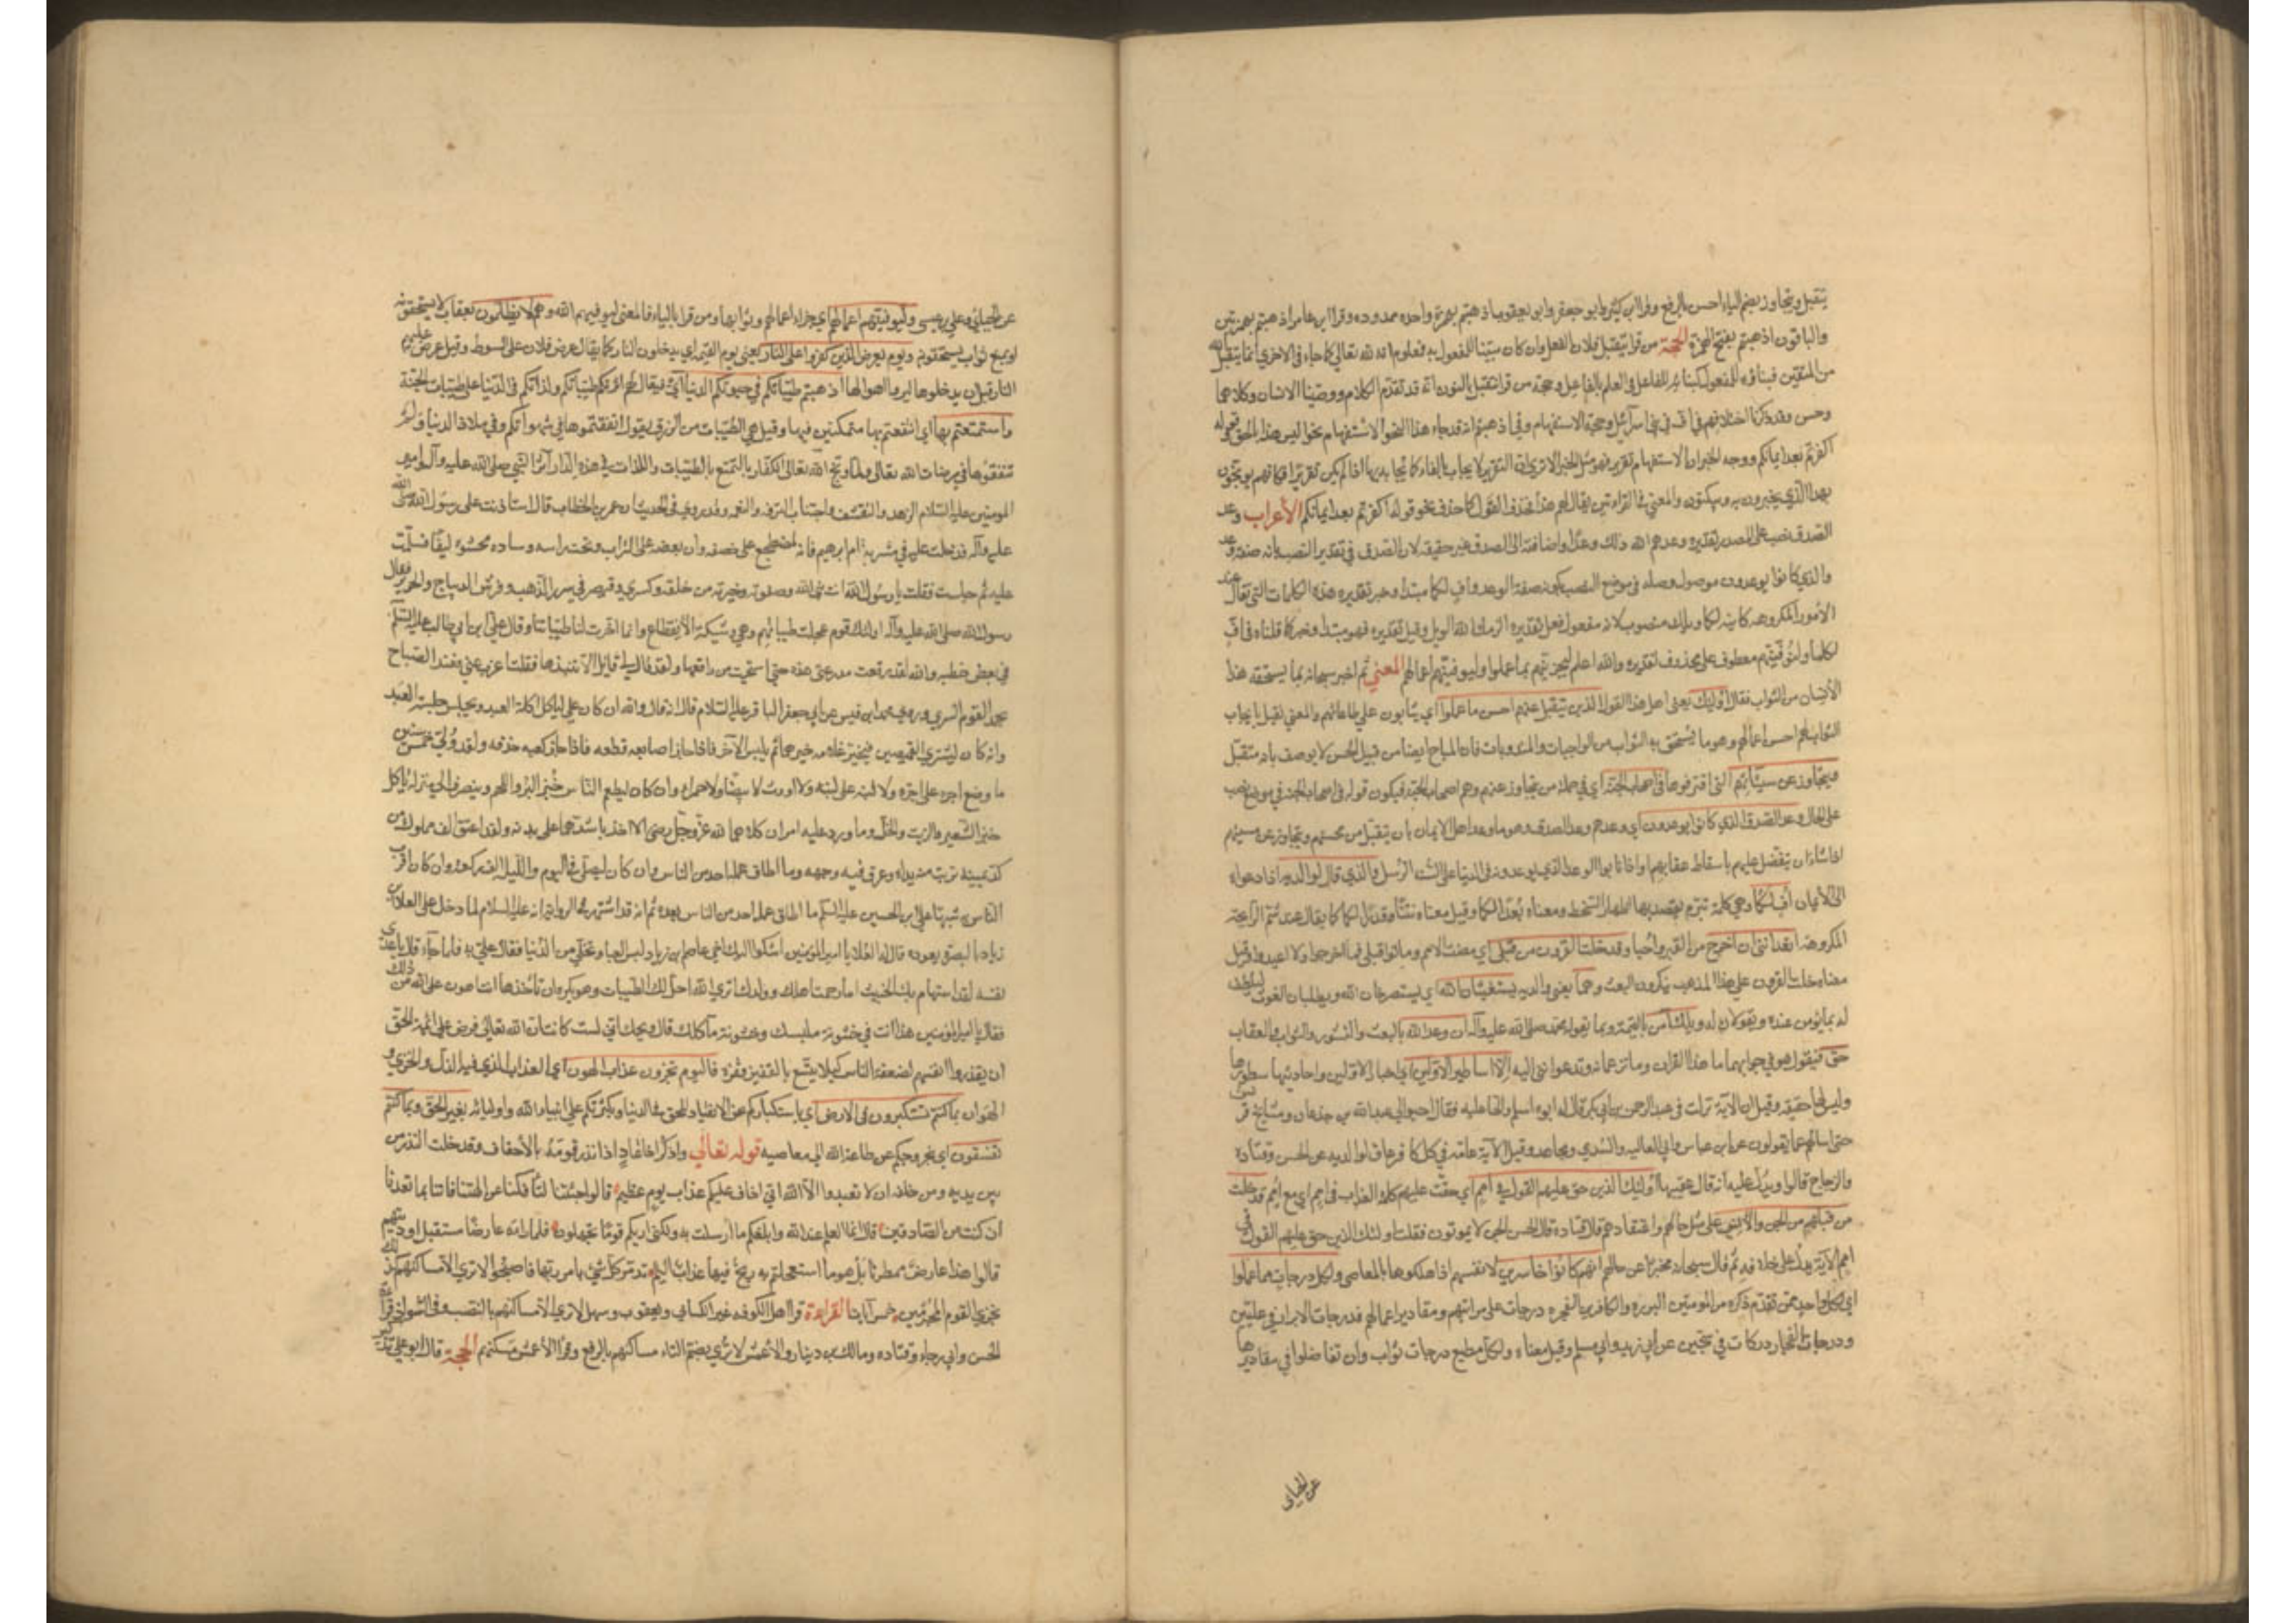 يتقبل ويتجاوز بضم الياء احسن بالرفع وقرا ابن كثير وابو جعفر وابو يعقوب اذهبتم بهمزة واحده ممدوده وقرا ابن عامر اذهبتم بهمزتين
والباقون اذهبتم بفتح الهمزة الحجة من قرا يتقبل فلان الفعل وان كان مبنيا للمفعول به فمعلوم انه لله تعالى كما جاء في الاخرى انما يتقبل الله
من المتقين فبناؤه للمفعول كبنائه للفاعل في العلم بالفاعل وحجة من قرا نتقبل بالنون انه قد تقدم الكلام ووصينا الانسان وكلاهما
وحسن وقد ذكرنا اختلافهم في اف في بني اسرائيل وحجة الاستفهام وفي اذهبتم انه قد جاء هذا النحو الاستفهام نحو اليس هذا بالحق وقوله
اكفرتم بعد ايمانكم ووجه الخبر ان الاستفهام تقرير فهو مثل الخبر الا ترى ان التقرير لا يجاب بالفاء كما يجاب بها اذا لم يكن تقريرا فكانهم يوبخون
بهذا الذي يخبرون به ويبكتون والمعنى في القراءتين يقال لهم هذا فحذف القول كما حذف في نحو قوله اكفرتم بعد ايمانكم الأعراب وعد
الصدق نصب على المصدر تقديره وعدهم الله ذلك وعدا واضافته الى الصدق غير حقيقه لان الصدق في تقدير النصب بانه صفة وعد
والذي كانوا يوعدون موصول وصله في موضع النصب بكونه صفة الوعد واف لكما مبتدا وخبر تقديره هذه الكلمات التي تقال عند
الامور المكروهه كاينه لكما ويلك منصوب لانه مفعول فعل تقديره الزمك الله الويل وقيل تقديره فهو مبتدا وخبر كما قلناه في اف
لكما ولنوفيتهم معطوف على محذوف تقديره والله اعلم ليجزيهم بما عملوا وليوفيتهم اعمالهم المعني ثم اخبر سبحانه بما يستحقه هذا
الأنسان من الثواب فقال أولئك يعني اهل هذا القول الذين يتقبل عنهم احسن ما عملوا اي يثابون على طاعاتهم والمعنى نقبل بايجاب
الثواب لهم احسن اعمالهم وهو ما يستحق به الثواب من الواجبات والمندوبات فان المباح ايضا من قبيل الحسن لا يوصف بانه متقبل
ويتجاوز عن سيئاتهم التي اقترفوها في اصحاب الجنة اي في جملة من يتجاوز عنهم وهم اصحاب الجنة فيكون قوله في اصحاب الجنة في موضع نصب
على الحال وعد الصدق الذي كانوا يوعدون اي وعدهم وعد الصدق وهو ما وعد اهل الايمان بان يتقبل من محسنهم ويتجاوز عن مسيئهم
اذا شاء ان يتفضل عليهم باسقاط عقابهم او اذا تابوا الوعد الذي يوعدونه في الدنيا على السنة الرسل والذي قال لوالديه اذا دعواه
الى الأيمان أف لكما وهي كلمة تبرم يقصد بها اظهار السخط ومعناه بعدا لكما وقيل معناه نتنا وقذرا لكما كما يقال عند شم الرايحة
المكروهة اتعدانني ان اخرج من القبر واحيا وقد خلت القرون من قبلي اي مضت الامم وماتوا قبلي فما اخرجوا ولا اعيدوا وقيل
معناه خلت القرون على هذا المذهب ينكرون البعث وهما يعني والديه يستغيثان الله اي يستصرخان الله ويطلبان الغوث
له بما يؤمن عنده ويقولان له ويلك آمن بالقيمة وبما يقوله محمد صلى الله عليه وآله ان وعد الله بالبعث والنشور والثواب والعقاب
حق فيقول هو في جوابهما ما هذا القران وما تزعمانه وتدعوانني اليه الا اساطير الاولين اي اخبار الاولين واحاديثها سطروها
وليس لها حقيقة وقيل ان الاية نزلت في عبد الرحمن بن ابي بكر قال له ابواه اسلم والحا عليه فقال احيوا لي عبد الله بن جدعان ومشايخ قريش
حتى اسالهم عما يقولون عن ابن عباس وابي العاليه والسدي ومجاهد وقيل الآية عامة في كل كافر عاق لوالديه عن الحسن وقتادة
والزجاج قالوا ويدل عليه انه قال عقيبها اولئك الذين حق عليهم القول في امم اي حقت عليهم كلمة العذاب في امم اي مع امم قد خلت
من قبلهم من الجن والأنس على مثل حالهم واعتقادهم قال قتادة قال الحسن الجن لا يموتون فقلت اولئك الذين حق عليهم القول في
امم الآية يدل على خلافه ثم قال سبحانه مخبرا عن حالهم انهم كانوا خاسرين لانفسهم اذ اهلكوها بالمعاصي ولكل درجات مما عملوا
اي لكل واحد ممن تقدم ذكره من المومنين البرره والكافرين الفجره درجات على مراتبهم ومقادير اعمالهم فدرجات الابرار في عليين
ودرجات الفجار دركات في سجين عن ابن زيد وابي مسلم وقيل معناه ولكل مطيع درجات ثواب وان تفاضلوا في مقاديرها
عن الجبائي
عن الجبائي وعلي بن عيسى وليوفيتهم اعمالهم اي جزاء اعمالهم وثوابها ومن قرا بالياء فالمعنى ليوفيهم الله وهم لا يظلمون بعقاب لا يستحقونه
او بمنع ثواب يستحقونه ويوم يعرض الذين كفروا على النار يعني يوم القيمة اي يدخلون النار كما يقال عرض فلان على السوط وقيل عرض عليهم
النار قبل ان يدخلوها ليروا اهوالها اذهبتم طيباتكم في حيوتكم الدنيا اي فيقال لهم آثرتم طيباتكم ولذاتكم في الدنيا على طيبات الجنة
واستمتعتم بها اي انتفعتم بها متمكنين فيها وقيل هي الطيبات من الرزق يقول انفقتموها في شهواتكم وفي ملاذ الدنيا ولم
تنفقوها في مرضات الله تعالى ولما وبخ الله تعالى الكفار بالتمتع بالطيبات واللذات في هذه الدار آثر النبي صلى الله عليه وآله وامير
المومنين عليه السلام الزهد والتقشف واجتناب الترفه والنعمة وقد روي في الحديث ان عمر بن الخطاب قال استاذنت على رسول الله صلى الله
عليه وآله فدخلت عليه في مشربة ام ابرهيم فانه لمضطجع على خصفه وان بعضه على التراب وتحت راسه وساده محشوه ليفا فسلمت
عليه ثم جلست فقلت يا رسول الله انت نبي الله وصفوته وخيرته من خلقه وكسرى وقيصر في سرر الذهب وفرش الديباج والحرير فقال
رسول الله صلى الله عليه وآله اولئك قوم عجلت طيباتهم وهي وشيكة الانقطاع وانما اخرت لنا طيباتنا وقال علي ابن ابي طالب عليه السلام
في بعض خطبه والله لقد رقعت مدرعتي هذه حتى استحييت من راقعها ولقد قال لي قايل الا تنبذها فقلت اعزب عني فعند الصباح
يحمد القوم السري وروى محمد ابن قيس عن ابي جعفر الباقر عليه السلام قال انه قال والله ان كان علي لياكل اكلة العبد ويجلس جلسة العبد
وانه كان ليشتري القميصين فيخير غلامه خيرهما ثم يلبس الآخر فاذا جاز اصابعه قطعه فاذا جاز كعبه حذفه ولقد ولي خمس سنين
ما وضع اجره على اجره ولا لبنه على لبنه ولا اورث لا بيضاء ولا حمراء وان كان ليطعم الناس خبز البر واللحم وينصرف الى منزله ياكل
خبز الشعير والزيت والخل وما ورد عليه امران كلاهما لله عز وجل رضى الا اخذ باشدهما على بدنه ولقد اعتق الف مملوك من
كد يمينه تربت منه يداه وعرق فيه وجهه وما اطاق عمله احد من الناس وان كان ليصلي في اليوم والليل الف ركعة وان كان اقرب
الناس شبها علي بن الحسين عليه السلام ما اطاق عمله احد من الناس بعده ثم انه قد اشتهر في الرواية انه عليه السلام لما دخل على العلاء بن
زياد بالبصرة يعوده قال له العلاء يا امير المؤمنين اشكوا اليك اخي عاصم بن زياد لبس العبا وتخلى من الدنيا فقال علي به فلما جاء قال يا عدي
نفسه لقد استهام بك الخبيث اما رحمت اهلك وولدك اترى الله احل لك الطيبات وهو يكره ان تأخذها انت اهون على الله من ذلك
فقال يا امير المؤمنين هذا انت في خشونة ملبسك وخشونة مآكلك قال ويحك اني لست كانت ان الله تعالى فرض على ائمة الحق
ان يقدروا انفسهم لضعفة الناس كيلا يتبيغ بالفقير فقره فاليوم تجزون عذاب الهون اي العذاب الذي فيه الذل والخزي و
الهوان بما كنتم تستكبرون في الارض اي باستكباركم عن الانقياد للحق في الدنيا وتكبركم على انبياء الله واوليائه بغير الحق وبما كنتم
تفسقون اي بخروجكم عن طاعة الله الى معاصيه قوله تعالى واذكر اخا عاد اذ انذر قومه بالأحقاف وقد خلت النذر من
بين يديه ومن خلفه ان لا تعبدوا الا الله اني اخاف عليكم عذاب يوم عظيم قالوا جئتنا لتأفكنا عن الهتنا فاتنا بما تعدنا
ان كنت من الصادقين قال انما العلم عند الله وابلغكم ما ارسلت به ولكني اريكم قوما تجهلون فلما راوه عارضا مستقبل اوديتهم
قالوا هذا عارض ممطرنا بل هو ما استعجلتم به ريح فيها عذاب اليم تدمر كل شيء بامر ربها فاصبحوا لا ترى الا مساكنهم كذلك
نجزي القوم المجرمين خمس آيات القراءة قرا اهل الكوفه غير الكسائي ويعقوب وسهل لا يرى الا مساكنهم بالنصب وفي الشواذ قراءة
الحسن وابي رجاء وقتاده ومالك بن دينار والأعمش لا ترى بضم التاء مساكنهم بالرفع وقرا الأعمش مسكنهم الحجة قال ابو علي